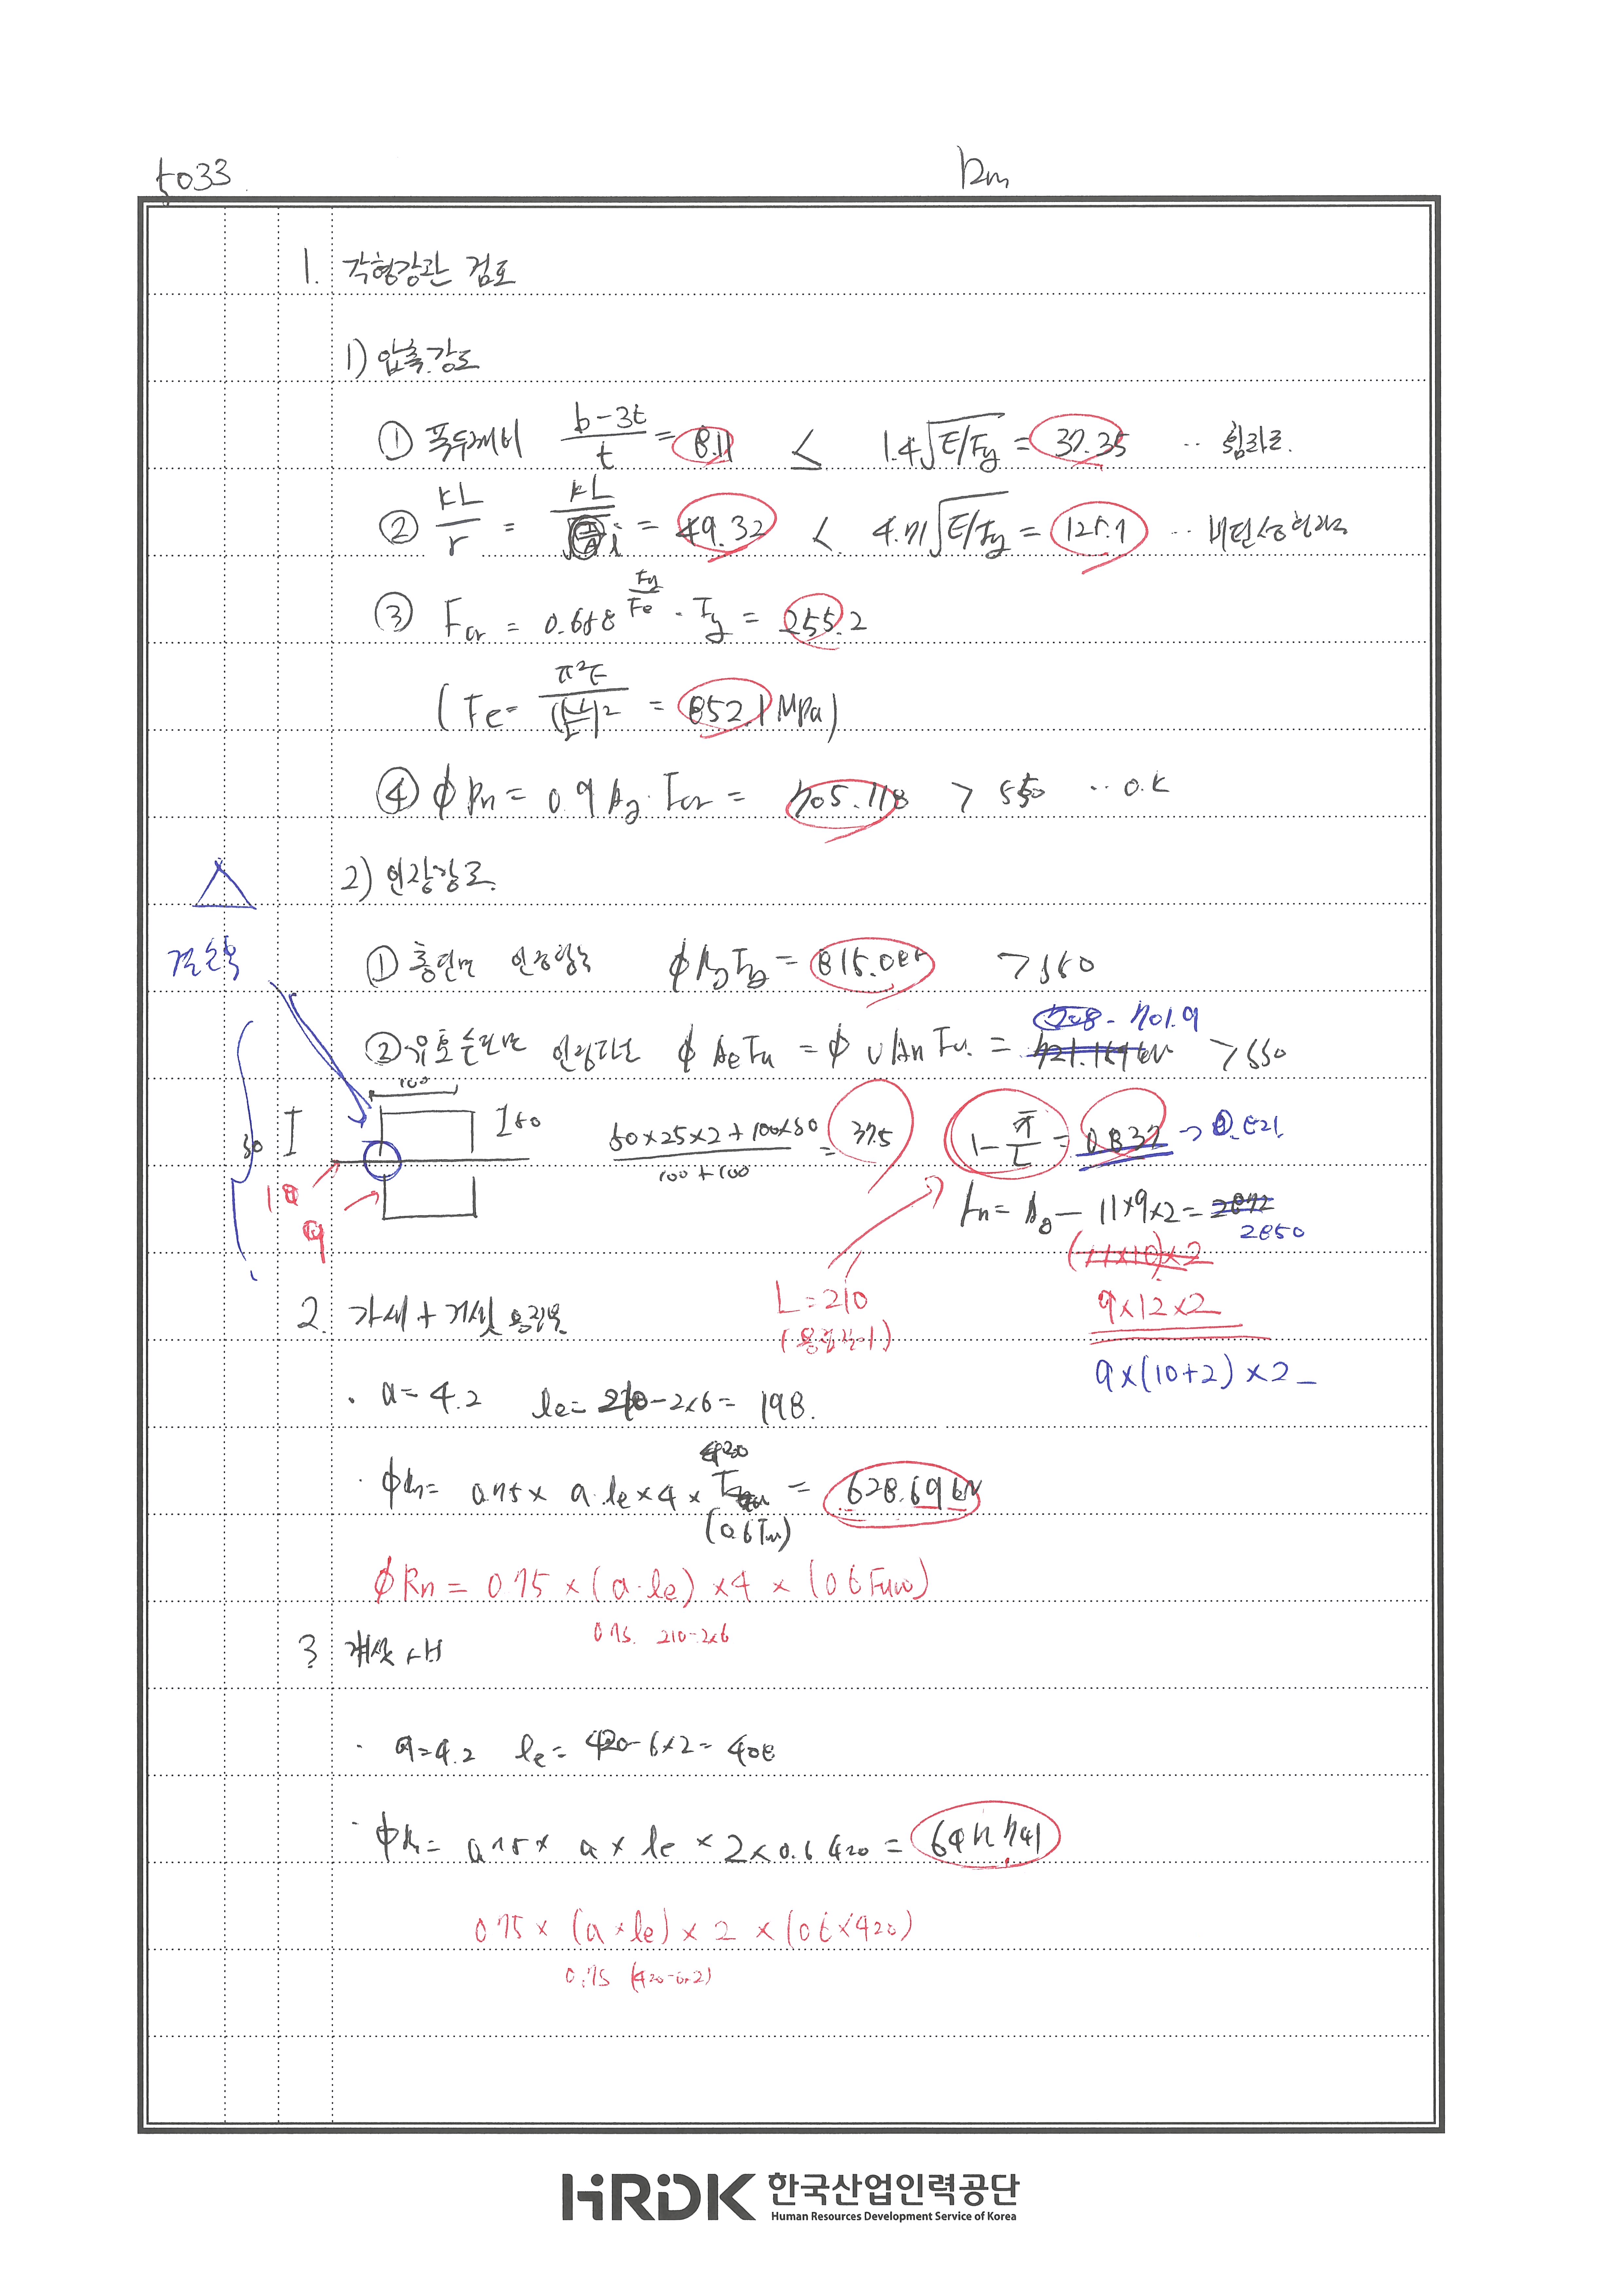 5033.
12m
1. 각형강관 검토
1) 압축강도
① 폭두께비 b-3t/t = 8.11 ≤ 1.4√E/Fy = 37.35 ·· 횡좌굴.
② KL/r = KL/i = 49.32 < 4.71√E/Fy = 125.7 ·· 비탄성좌굴
③ Fcr = 0.658^(Fy/Fe) · Fy = 255.2
( Fe = π²E/(KL/r)² = 852.1 MPa )
④ ϕPn = 0.9 Ag · Fcr = 705.118 > 550 ·· O.K
2) 인장강도.
① 총단면 인장항복 ϕAgFy = 815.085 > 550
708 - 701.9
결손폭
② 유효순단면 인장파단 ϕ AeFu = ϕ UAnFu. = 721.169 kN > 550
100
50 I
I 50
50×25×2+100×50/100+100 = 37.5
1-x̄/L = 0.837 → 0.821
10
9
An = Ag - 11×9×2 = 2872
2850
(11×10)×2
L=210
(용접길이)
9×12×2
9×(10+2)×2
2. 가새+거싯 용접부
· a=4.2 le=210-2×6= 198.
420
· ϕRn= 0.75× a·le×4× = 628.69 kN
(0.6Fuw)
ϕRn = 0.75×(a·le)×4×(0.6Fuw)
0.7S. 210-2×6
3 거싯
· a=4.2 le= 420-6×2= 408
· ϕRn= 0.75× a× le ×2×0.6 420 = 647.741
0.75×(a×le)×2×(0.6×420)
0.7S (420-6×2)
HRDK 한국산업인력공단
Human Resources Development Service of Korea